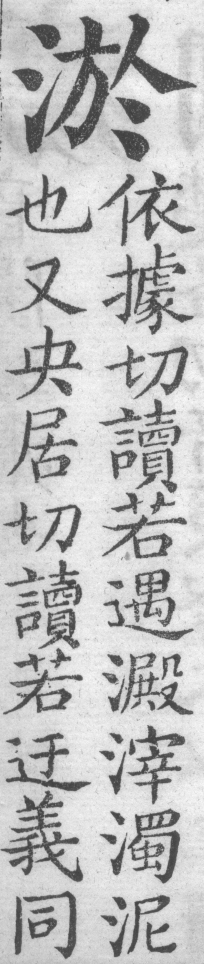 淤
依據切讀若遇澱滓濁泥
也又央居切讀若迂義同